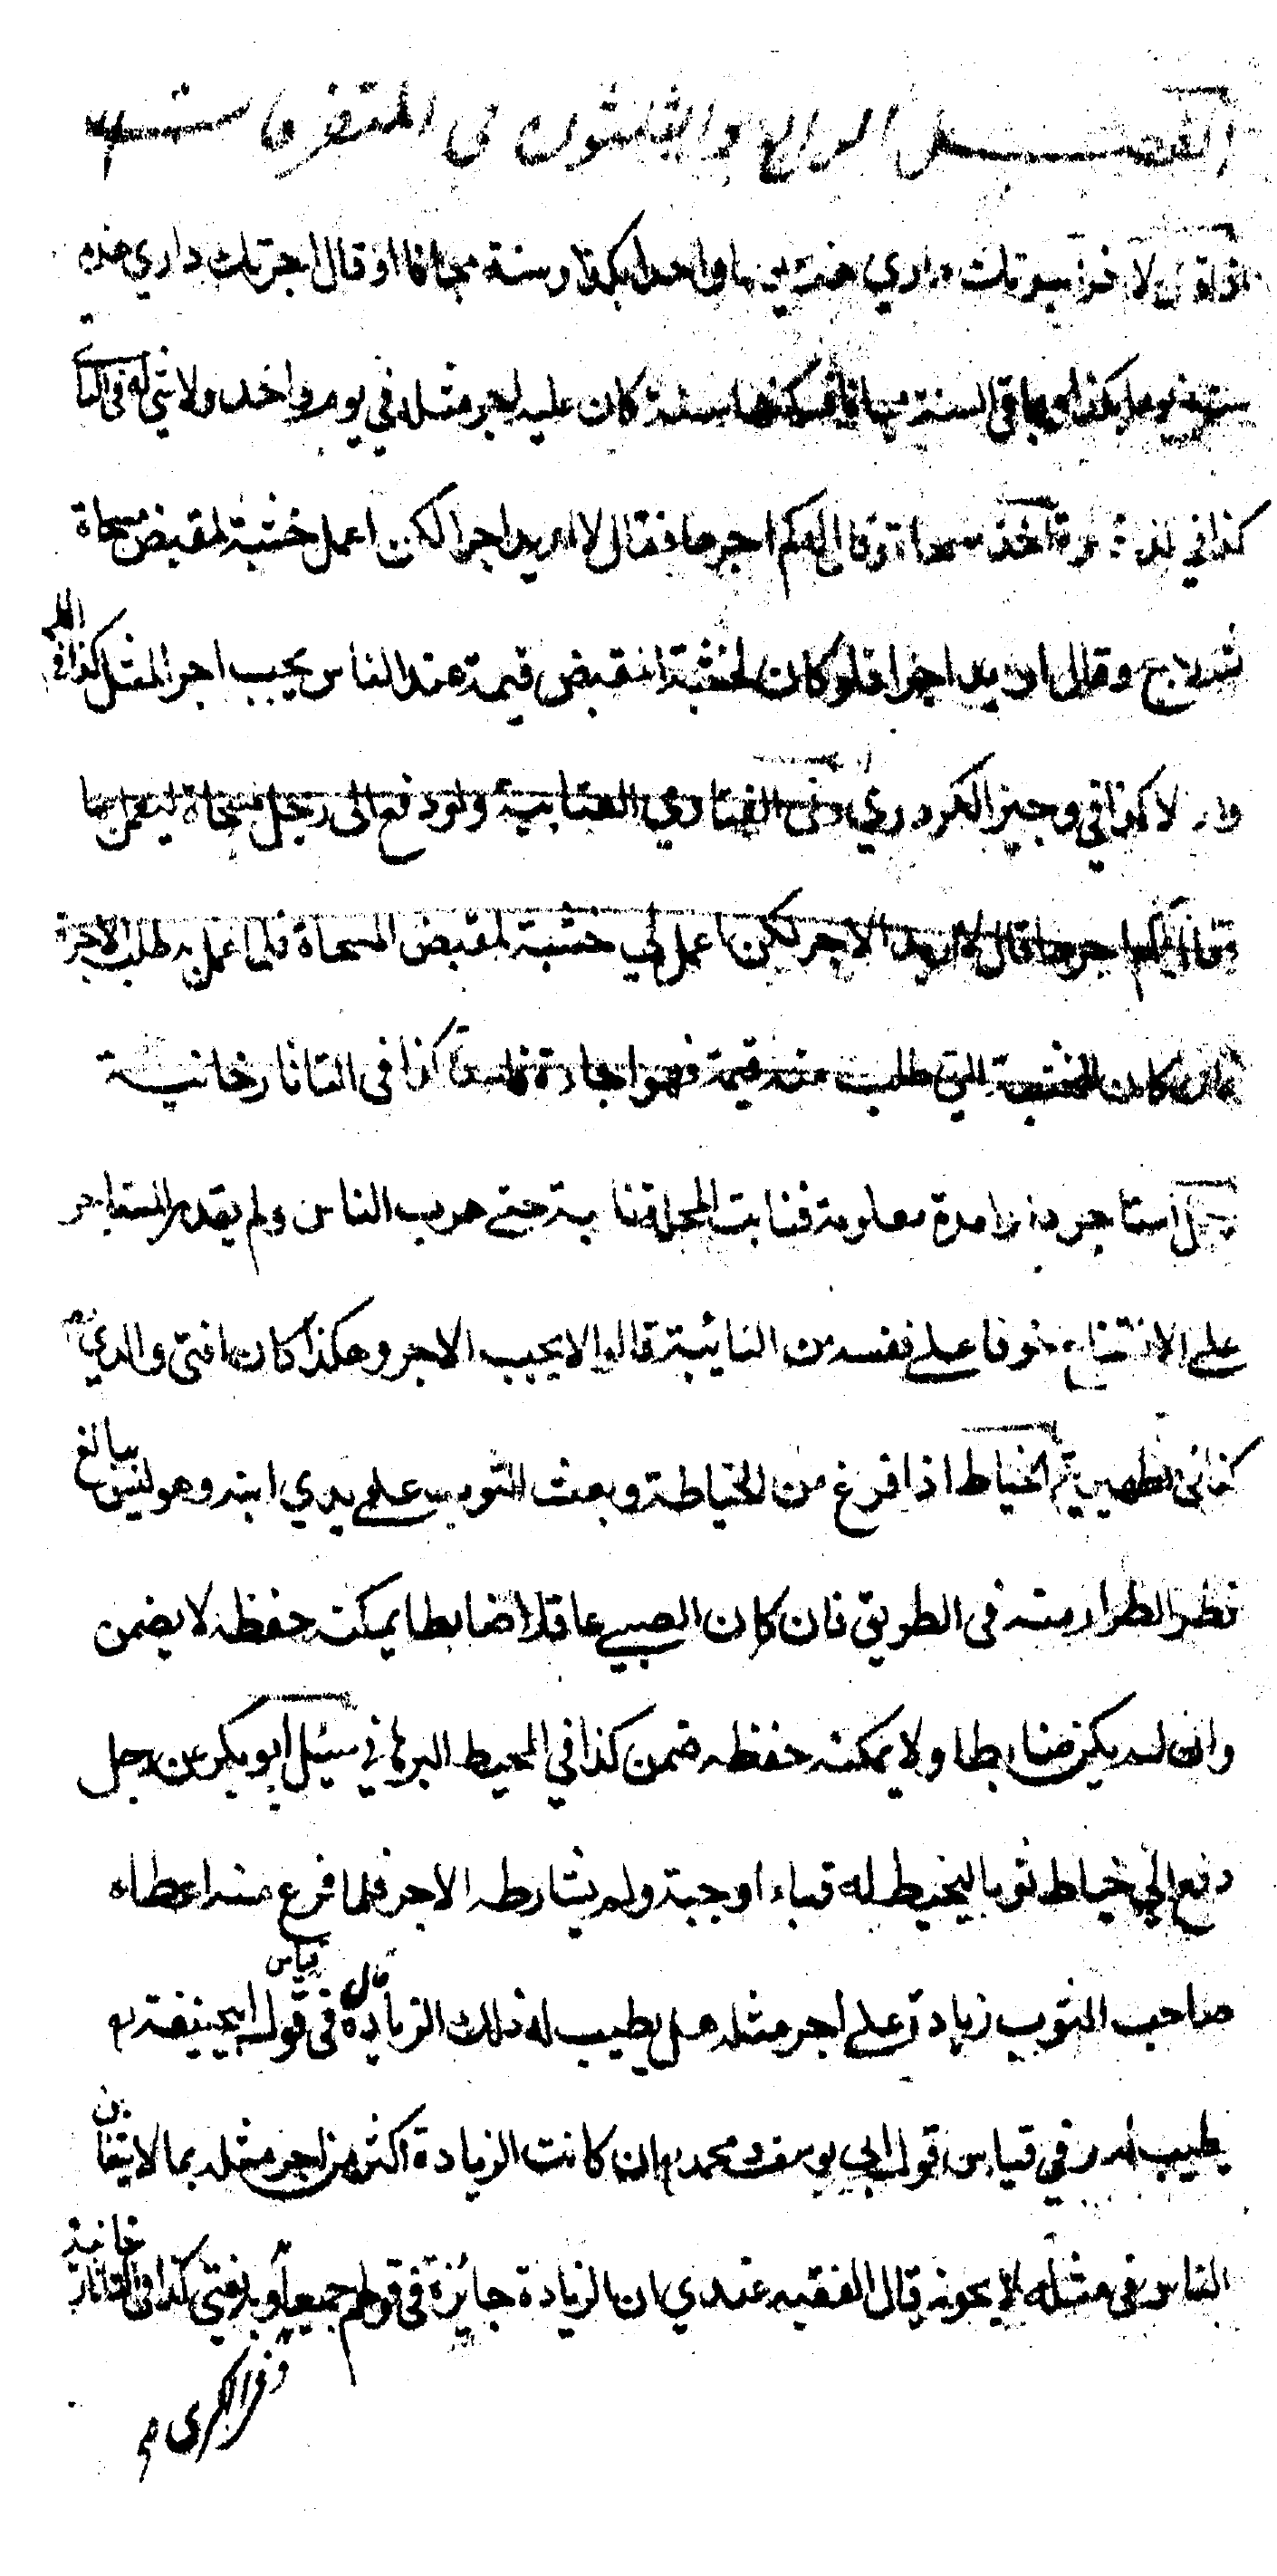 الفصل الرابع والثلثون في المتفرقات
لاخر اجرتك داري هذه يوما واحدا بكذا وسنة مجانا او قال اجرتك داري هذه
سنة يوما بكذا وباقي السنة مجانا فسكنها سنة كان عليه اجر مثله في يوم واحد ولا شئ له في الباقي
كذا في اخذ مسحاة وقال كم اجرها فقال لا اريد اجرا لكن اعمل خشبة لمقبض مسحاة
وقال اريد اجرا فلو كان لخشبة المقبض قيمة عند الناس يجب اجر المثل كذا في
لا كذا في وجيز الكردري وفي الفتاوي العتابية ولو دفع الى رجل مسحاة ليعمل بها
اجرها قال لا اريد الاجر لكن اعمل لي خشبة لمقبض المسحاة فلما عمل به طلب الاجرة
كان الخشبة التي طلب منه قيمة فهو اجارة فاسدة كذا في التاتارخانية
رجل استاجر دارا مدة معلومة فنابت المحلة نايبة حتى هرب الناس ولم يقدر المستاجر
على الانتفاع خوفا على نفسه من النائبة قالوا لا يجب الاجر وهكذا كان افتى والدي
كذا في الظهيرية الخياط اذا فرغ من الخياطة وبعث الثوب على يدي ابنه وهو ليس ببالغ
فطر الطرار منه في الطريق فان كان الصبي عاقلا ضابطا يمكنه حفظه لا يضمن
وان لم يكن ضابطا ولا يمكنه حفظه ضمن كذا في المحيط البرهاني سئل ابو بكر عن رجل
دفع الى خياط ثوبا ليخيط له قباء او جبة ولم يشارطه الاجر فلما فرغ منه اعطاه
صاحب الثوب زيادة على اجر مثله هل يطيب له ذلك الزيادة قال في قياس قول ابي حنيفة رح
يطيب له وفي قياس قول ابي يوسف ومحمد رح ان كانت الزيادة اكثر من اجر مثله بما لا يتغابن
الناس في مثله لا يجوز قال الفقيه عندي ان الزيادة جائزة في قولهم جميعا وبه نفتي كذا في التاتارخانية